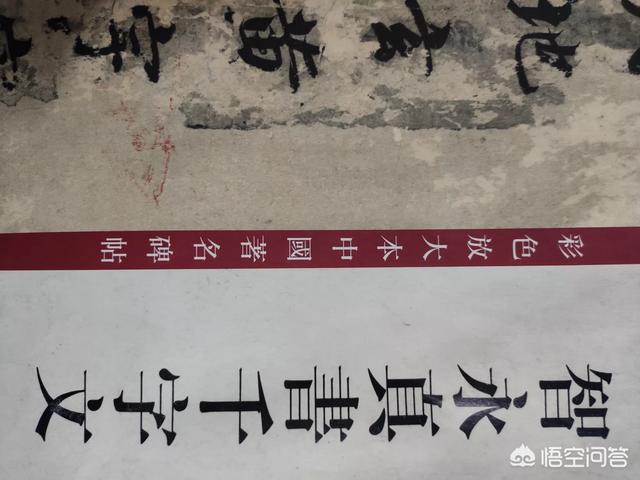 地玄黄宇
彩色放大本中國著名碑帖
智永真書千字文
悟空问答